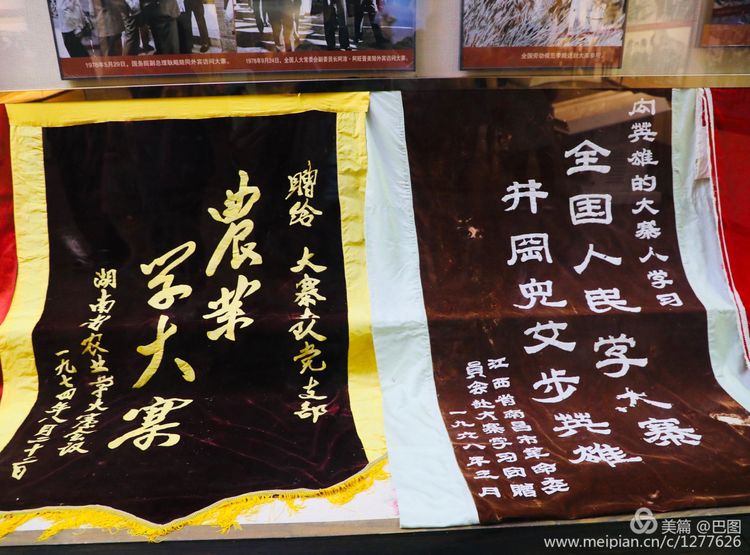 1978年5月29日，国务院副总理耿飚陪同外宾访问大寨。
1978年9月24日，全国人大常委会副委员长阿沛·阿旺晋美陪外宾访问大寨。
赠给 大寨大队党支部
農業
学大寨
湖南省农业学大寨会议
一九七四年八月二十
向英雄的大寨人学习
全国人民学大寨
井岡兒女步英雄
江西省南昌市革命委
员会赴大寨学习团赠
一九六八年三月
美篇 @巴图
www.meipian.cn/c/1277626